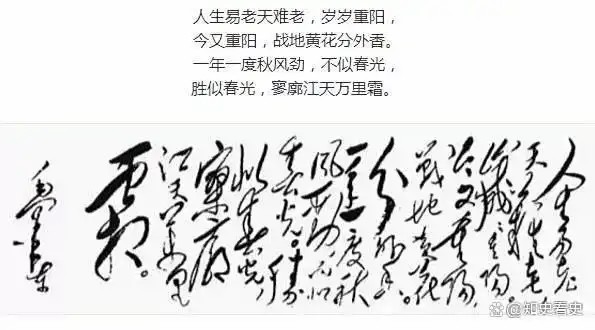 人生易老天难老，岁岁重阳，
今又重阳，战地黄花分外香。
一年一度秋风劲，不似春光，
胜似春光，寥廓江天万里霜。
人生易老
天难老，
岁岁重阳。
今又重阳，
战地黄花
分外香。
一年一度秋
风劲，不似
春光。胜
似春光，
寥廓
江天万里
霜。
毛泽东
@知史看史